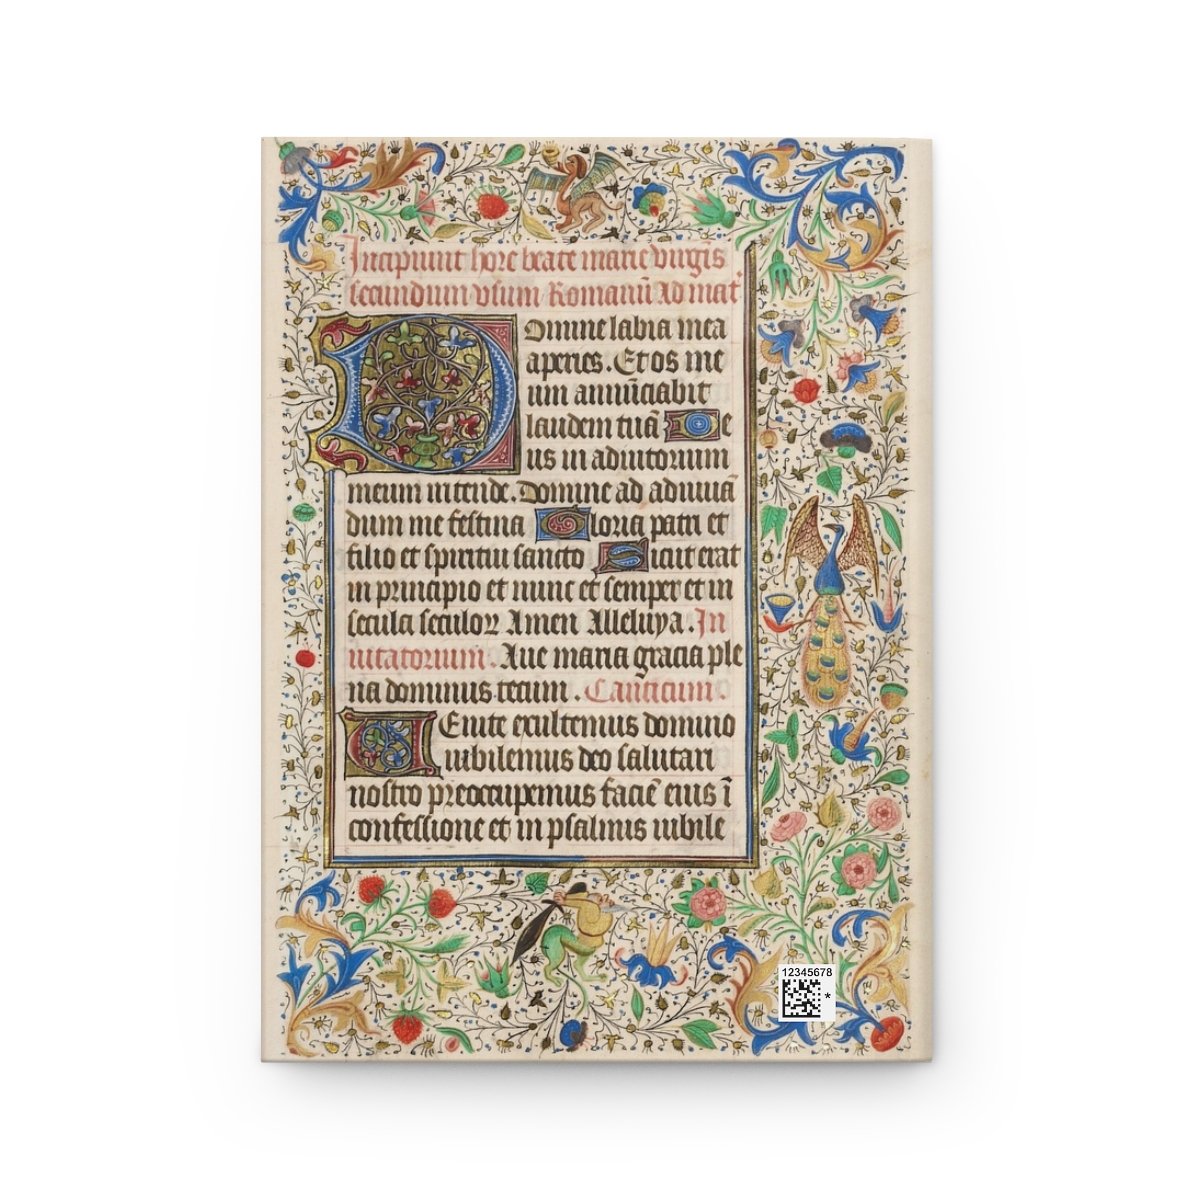 Incipiunt hore beate marie virgīs
secundum vsum Romanū Ad mat̄
Domine labia mea
aperies. Et os me
um annūciabit
laudem tuā De
us in adiutorium
meum intende. Domine ad adiuuā
dum me festina Gloria patri et
filio et spiritui sancto Sicut erat
in principio et nunc et semper et in
secula seculoꝝ Amen Alleluya. In
uitatorium. Aue maria gracia ple
na dominus tecum. Canticum.
Uenite exultemus domino
iubilemus deo salutari
nostro preoccupemus faciē eius ī
confessione et in psalmis iubile
12345678
*